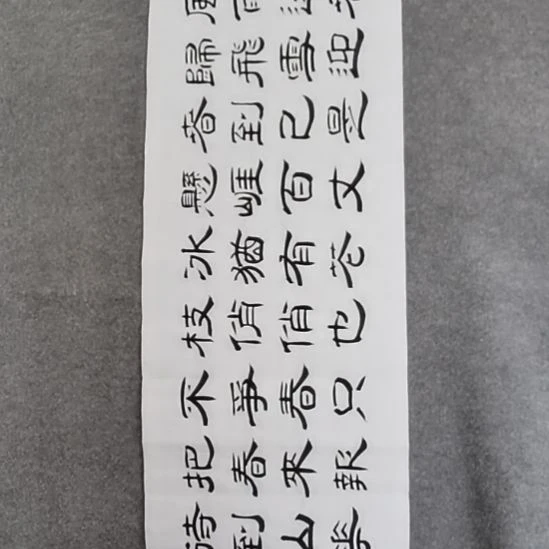 歸飛雪迎
春到已是
懸崖百丈
冰猶有花
枝俏俏也
不爭春只
把春來報
待到山